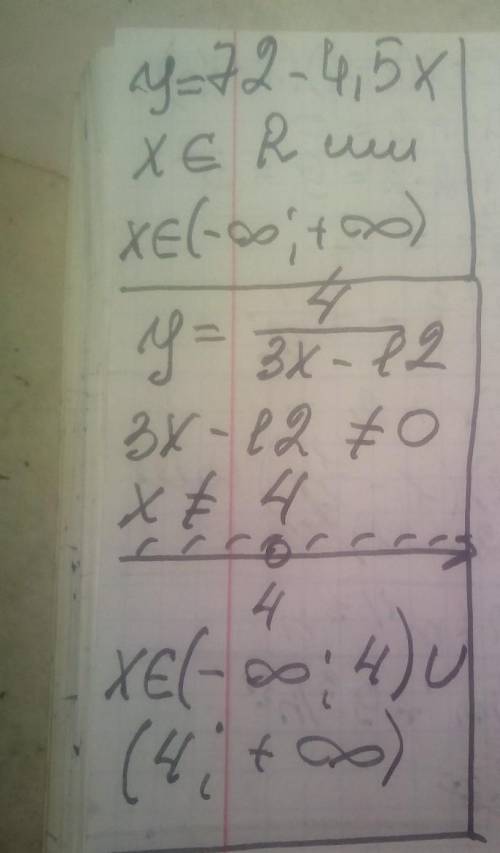 y=72-4,5x
x∈ R или
x∈(-∞;+∞)
y= 4/(3x-12)
3x-12 ≠0
x≠ 4
4
x∈(-∞; 4)∪
(4; +∞)